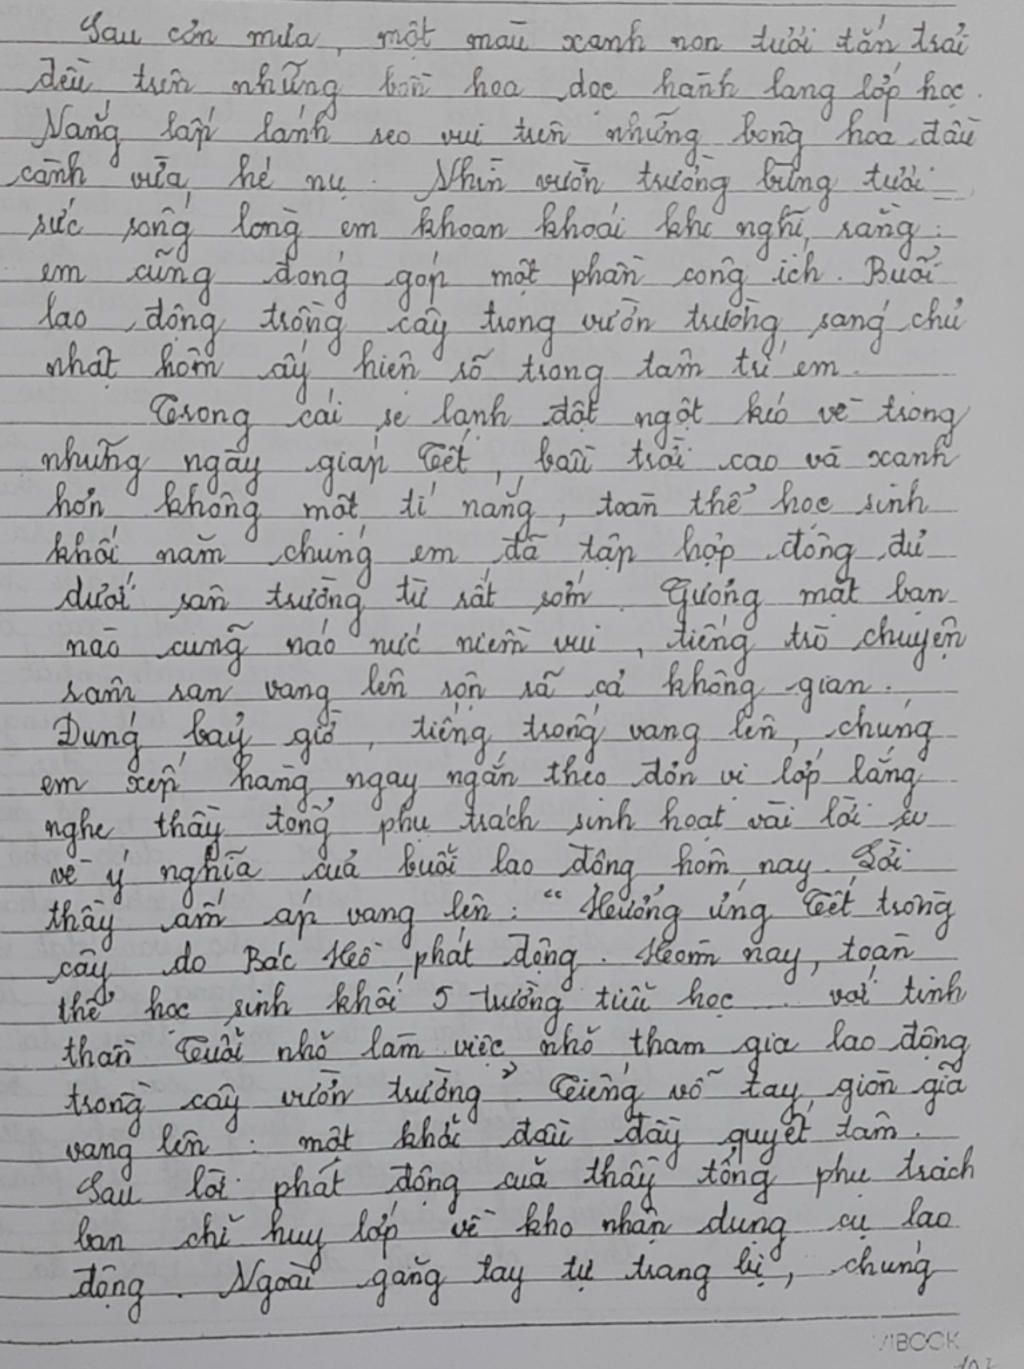 Sau cơn mưa, một màu xanh non tươi tắn trải
đều trên những bồn hoa dọc hành lang lớp học.
Nắng lấp lánh reo vui trên những bông hoa đầu
cành vừa hé nụ. Nhìn vườn trường bừng tươi
sức sống lòng em khoan khoái khi nghĩ rằng:
em cũng đóng góp một phần công ích. Buổi
lao động trồng cây trong vườn trường sáng chủ
nhật hôm ấy hiên rõ trong tâm trí em.
Trong cái se lạnh đột ngột kéo về trong
những ngày giáp Tết, bầu trời cao và xanh
hơn không một tí nắng, toàn thể học sinh
khối năm chúng em đã tập hợp đông đủ
dưới sân trường từ rất sớm. Gương mặt bạn
nào cũng náo nức niềm vui, tiếng trò chuyện
râm ran vang lên rộn rã cả không gian.
Đúng bảy giờ, tiếng trống vang lên, chúng
em xếp hàng ngay ngắn theo đơn vị lớp lắng
nghe thầy tổng phụ trách sinh hoạt vài lời
về ý nghĩa của buổi lao động hôm nay. Lời
thầy ấm áp vang lên: "Hưởng ứng Tết trồng
cây do Bác Hồ phát động. Hôm nay, toàn
thể học sinh khối 5 trường tiểu học .. với tinh
thần Tuổi nhỏ làm việc nhỏ tham gia lao động
trồng cây vườn trường". Tiếng vỗ tay giòn giã
vang lên: một khởi đầu đầy quyết tâm.
Sau lời phát động của thầy tổng phụ trách
ban chỉ huy lớp về kho nhận dụng cụ lao
động. Ngoài găng tay tự trang bị, chúng
VIBOOK